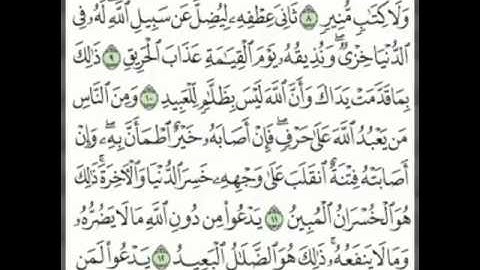 وَلَا كِتَٰبٖ مُّنِيرٖ ٨ ثَانِيَ عِطۡفِهِۦ لِيُضِلَّ عَن سَبِيلِ ٱللَّهِۖ لَهُۥ فِي
ٱلدُّنۡيَا خِزۡيٞۖ وَنُذِيقُهُۥ يَوۡمَ ٱلۡقِيَٰمَةِ عَذَابَ ٱلۡحَرِيقِ ٩ ذَٰلِكَ
بِمَا قَدَّمَتۡ يَدَاكَ وَأَنَّ ٱللَّهَ لَيۡسَ بِظَلَّٰمٖ لِّلۡعَبِيدِ ١٠ وَمِنَ ٱلنَّاسِ
مَن يَعۡبُدُ ٱللَّهَ عَلَىٰ حَرۡفٖۖ فَإِنۡ أَصَابَهُۥ خَيۡرٌ ٱطۡمَأَنَّ بِهِۦۖ وَإِنۡ
أَصَابَتۡهُ فِتۡنَةٌ ٱنقَلَبَ عَلَىٰ وَجۡهِهِۦ خَسِرَ ٱلدُّنۡيَا وَٱلۡأٓخِرَةَۚ ذَٰلِكَ
هُوَ ٱلۡخُسۡرَانُ ٱلۡمُبِينُ ١١ يَدۡعُواْ مِن دُونِ ٱللَّهِ مَا لَا يَضُرُّهُۥ
وَمَا لَا يَنفَعُهُۥۚ ذَٰلِكَ هُوَ ٱلضَّلَٰلُ ٱلۡبَعِيدُ ١٢ يَدۡعُواْ لَمَن